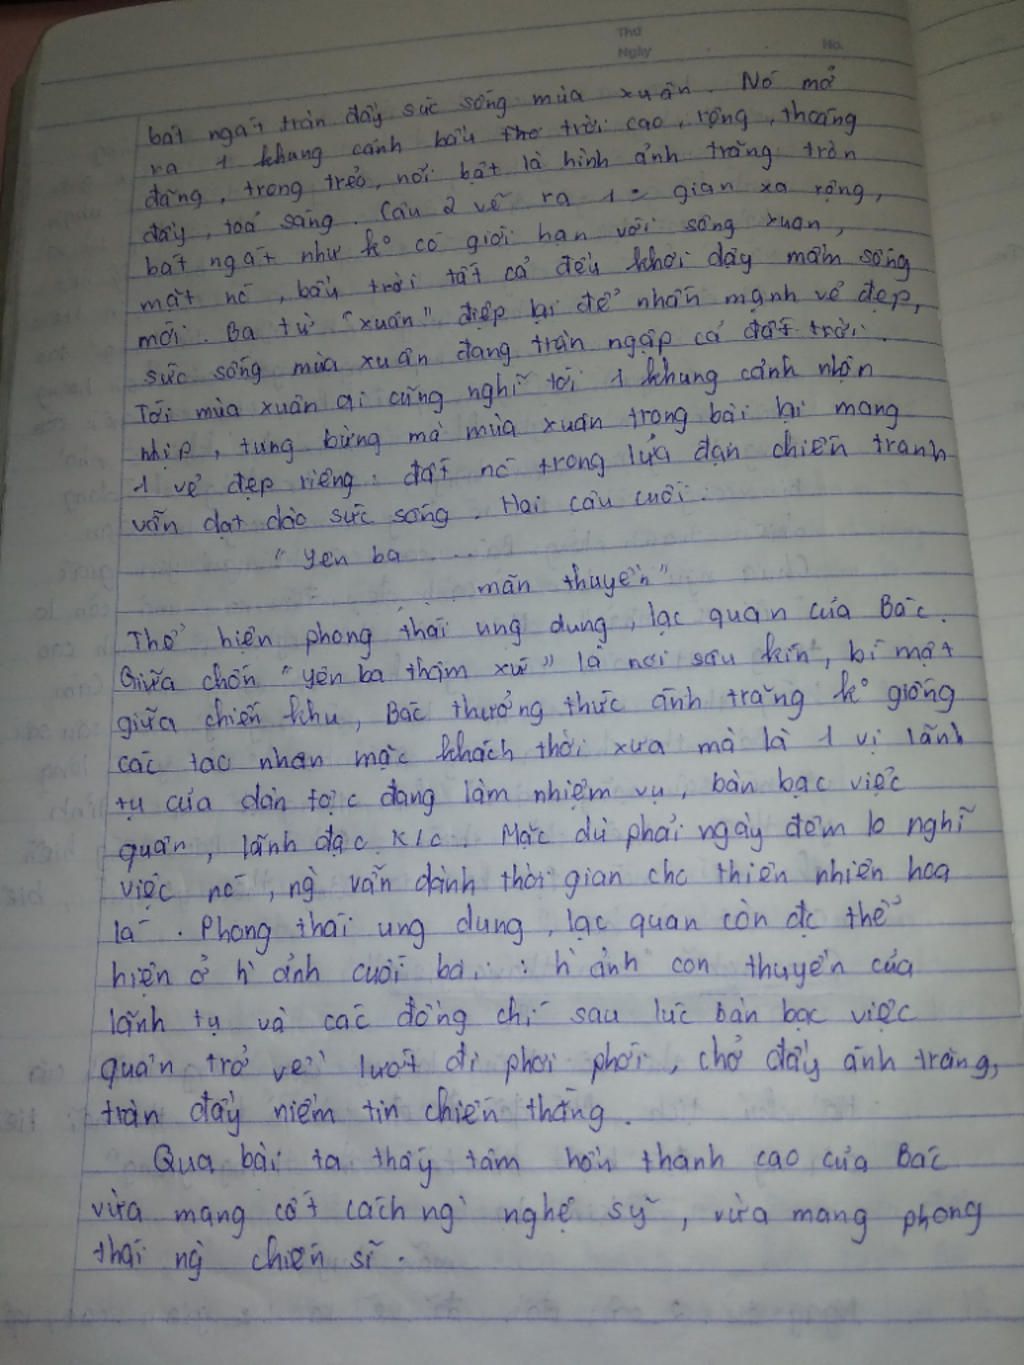 Thứ
Ngày
No.
bát ngát tràn đầy sức sống mùa xuân. Nó mở
ra 1 khung cảnh bầu trời cao, rộng, thoáng
đãng, trong trẻo, nổi bật là hình ảnh trăng tròn
đầy, toả sáng. Câu 2 vẽ ra 1 = gian xa rộng,
bát ngát như ko có giới hạn với sông xuân,
mặt nc, bầu trời tất cả đều khơi dậy mầm sống
mới. Ba từ "xuân" điệp lại để nhấn mạnh vẻ đẹp,
sức sống mùa xuân đang tràn ngập cả đất trời.
Tới mùa xuân ai cũng nghĩ tới 1 khung cảnh nhộn
nhịp, tưng bừng mà mùa xuân trong bài lại mang
1 vẻ đẹp riêng: đất nc trong lửa đạn chiến tranh
vẫn dạt dào sức sống. Hai câu cuối:
"Yên ba ....
... mãn thuyền"
Thể hiện phong thái ung dung, lạc quan của Bác.
Giữa chốn "yên ba thâm xứ" là nơi sâu kín, bí mật
giữa chiến khu, Bác thưởng thức ánh trăng ko giống
các tao nhân mặc khách thời xưa mà là 1 vị lãnh
tụ của dân tộc đang làm nhiệm vụ, bàn bạc việc
quân, lãnh đạo K/c. Mặc dù phải ngày đêm lo nghĩ
việc nc, ng` vẫn dành thời gian cho thiên nhiên hoa
lá. Phong thái ung dung, lạc quan còn đc thể
hiện ở h` ảnh cuối bài: h` ảnh con thuyền của
lãnh tụ và các đồng chí sau lúc bàn bạc việc
quân trở về lướt đi phơi phới, chở đầy ánh trăng,
tràn đầy niềm tin chiến thắng.
Qua bài ta thấy tâm hồn thanh cao của Bác
vừa mang cốt cách ng` nghệ sỹ, vừa mang phong
thái ng` chiến sĩ.